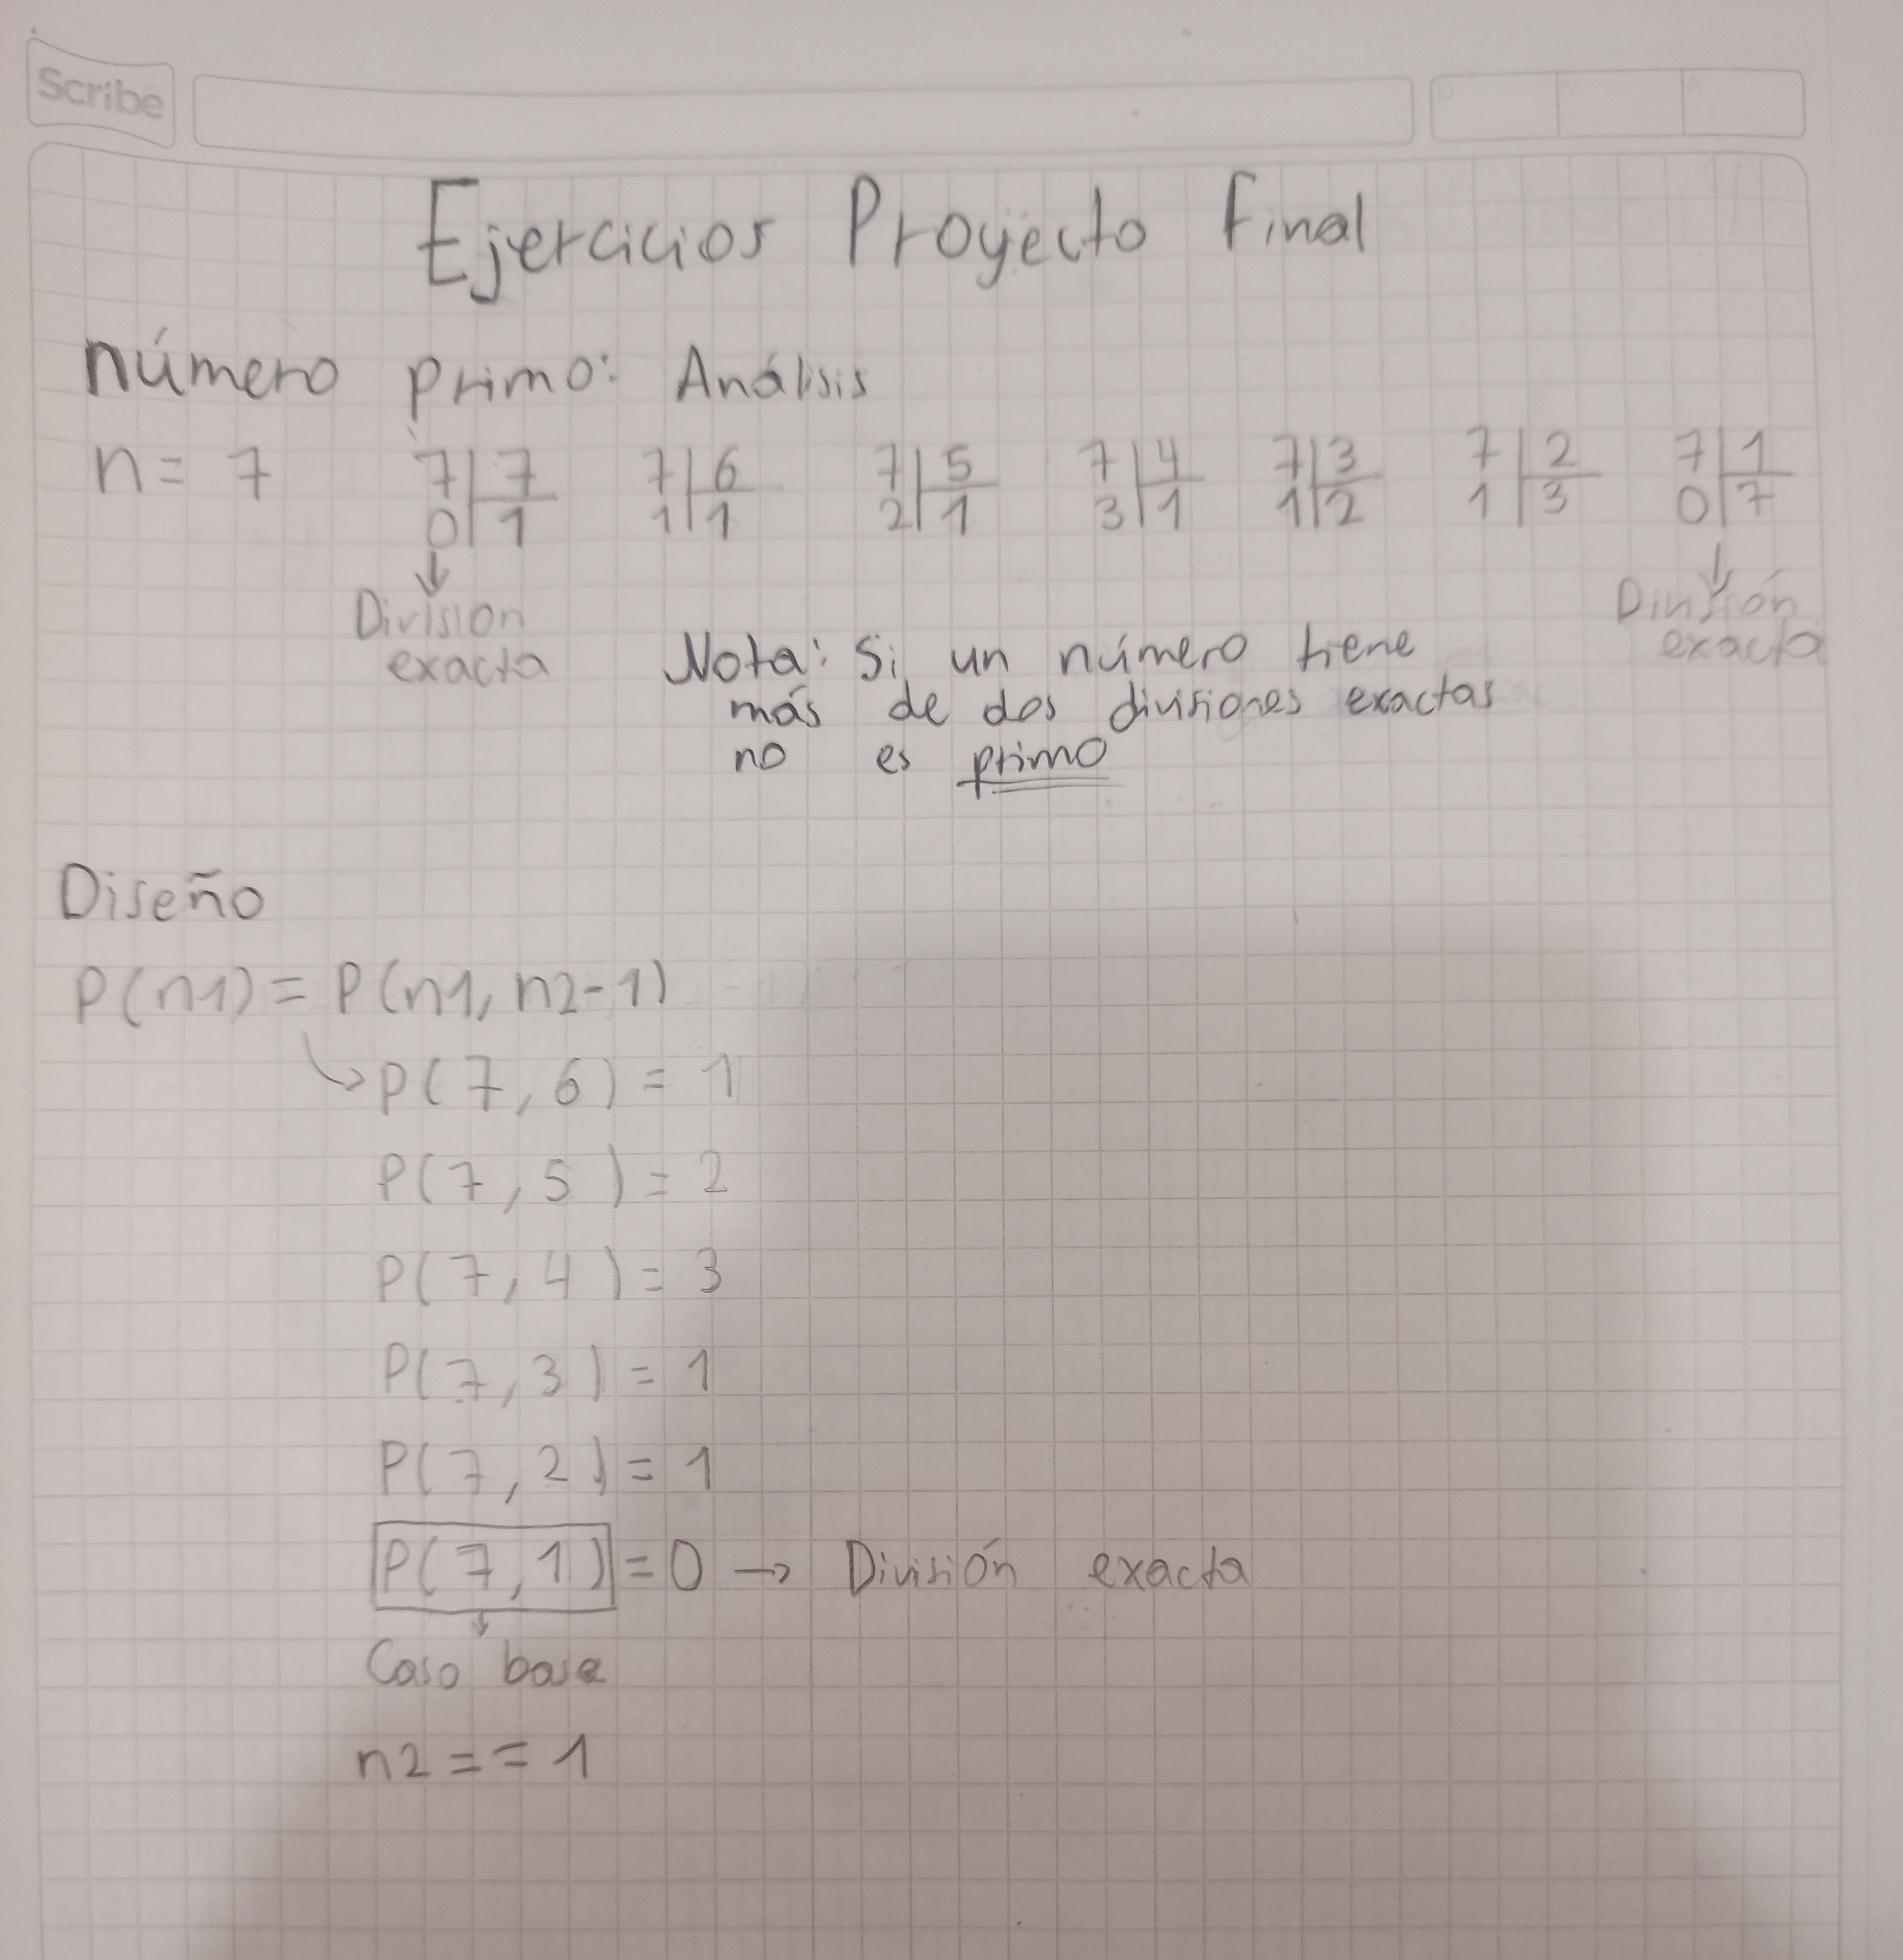 Scribe
D M A
Ejercicios Proyecto Final
número primo: Análisis
n = 7 7|7 7|6 7|5 7|4 7|3 7|2 7|1
0|1 1|1 2|1 3|1 1|2 1|3 0|7
↓ ↓
Division exacta
División exacta
Nota: Si un número tiene
más de dos divisiones exactas
no es primo
Diseño
P(n1) = P(n1, n2-1)
↳ P(7, 6) = 1
P(7, 5) = 2
P(7, 4) = 3
P(7, 3) = 1
P(7, 2) = 1
P(7, 1) = 0 → División exacta
↓
Caso base
n2 = = 1